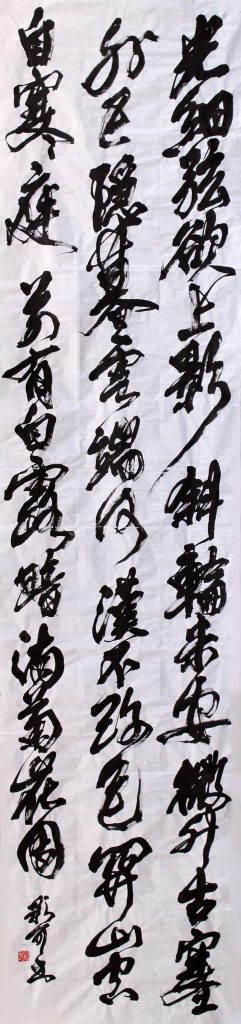 光細弦欲上影斜輪未安微升古塞
外已隱暮雲端河漢不改色關山空
自寒庭前有白露暗滿菊花團